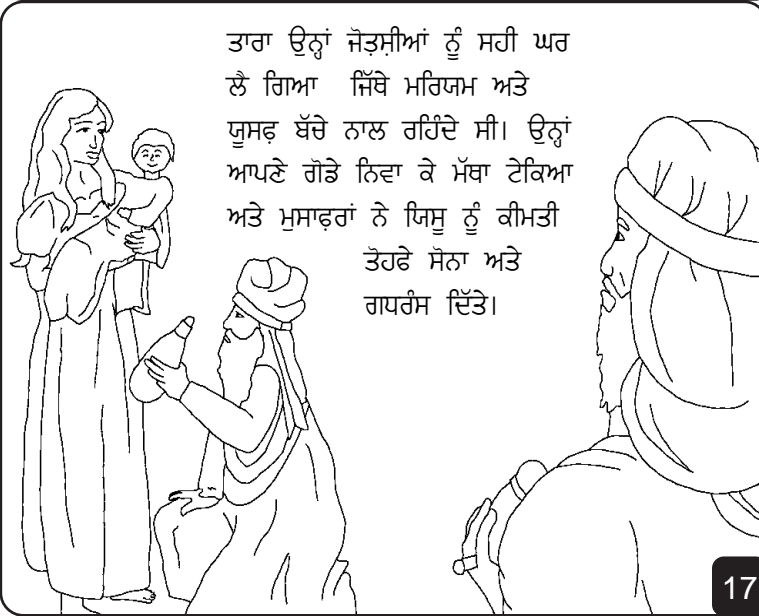 ਤਾਰਾ ਉਨ੍ਹਾਂ ਜੋਤਸ਼ੀਆਂ ਨੂੰ ਸਹੀ ਘਰ
ਲੈ ਗਿਆ ਜਿੱਥੇ ਮਰਿਯਮ ਅਤੇ
ਯੂਸਫ਼ ਬੱਚੇ ਨਾਲ ਰਹਿੰਦੇ ਸੀ। ਉਨ੍ਹਾਂ
ਆਪਣੇ ਗੋਡੇ ਨਿਵਾ ਕੇ ਮੱਥਾ ਟੇਕਿਆ
ਅਤੇ ਮੁਸਾਫ਼ਰਾਂ ਨੇ ਯਿਸੂ ਨੂੰ ਕੀਮਤੀ
ਤੋਹਫੇ ਸੋਨਾ ਅਤੇ
ਗਧਰੰਸ ਦਿੱਤੇ।
17